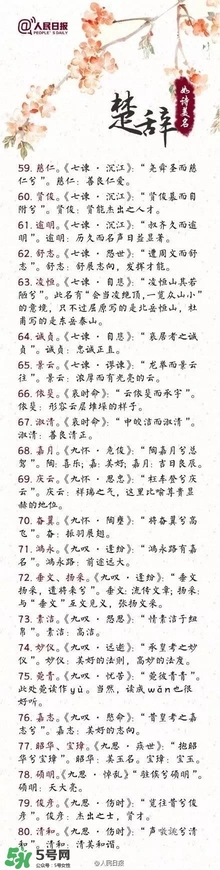 @人民日报
PEOPLE'S DAILY
如诗美名
楚辞
59. 慈仁。《七谏·沉江》：“尧舜圣而慈
仁兮”。慈仁：善良仁爱。
60. 贤俊。《七谏·沉江》：“贤俊慕而自
附兮”。贤俊：贤能杰出之人才。
61. 逾明。《七谏·沉江》：“叔齐久而逾
明”。逾明：历久而名声日益显著。
62. 舒志。《七谏·怨世》：“遭周文而舒
志”。舒志：舒展志向，发挥才能。
63. 凌恒。《七谏·自悲》：“凌恒山其若
陋兮”。此名有“会当凌绝顶，一览众山小”
的意境，只不过屈原写的是北岳恒山，杜
甫写的是东岳泰山。
64. 诚贞。《七谏·自悲》：“哀居者之诚
贞”。诚贞：忠诚正直。
65. 景云。《七谏·谬谏》：“龙举而景云
往”。景云：浓厚而有光亮的云。
66. 依斐。《哀时命》：“云依斐而承宇”。
依斐：形容云层堆垛的样子。
67. 淑清。《哀时命》：“中皎洁而淑清”。
淑清：善良清正。
68. 嘉月。《九怀·危俊》：“陶嘉月兮总
驾”。陶：喜乐；嘉：美好；嘉月：吉日良辰。
69. 庆云。《九怀·思忠》：“枉车登兮庆
云”。庆云：祥瑞之气，这里比喻尊贵显
赫的地位。
70. 奋翼。《九怀·陶壅》：“将奋翼兮高
飞”。奋：振羽展翅。
71. 鸿永。《九叹·逢纷》：“鸿永路有嘉
名”。鸿永路：前途远大。
72. 垂文、扬采。《九叹·逢纷》：“垂文
扬采，遗将来兮”。垂文：流传文章；扬采：
与“垂文”互文见义，张扬文采。
73. 素洁。《九叹·怨思》：“情素洁于纽
帛”。素洁：高洁。
74. 妙仪。《九叹·远逝》：“承皇考之妙
仪”。妙仪：美好的法则，高妙的法度。
75. 菀青。《九叹·忧苦》：“菀彼青青”。
此处菀读作yù。当然，读成wǎn也很
好听。
76. 嘉志。《九叹·愍命》：“昔皇考之嘉
志兮”。嘉志：美好的志向。
77. 昭华、宝璋。《九思·疾世》：“抱昭
华兮宝璋”。昭华：美玉名。宝璋：玉器。
78. 硕明。《九思·悼乱》“跓俟兮硕明”。
硕明：天大亮。
79. 俊彦。《九思·伤时》：“览往昔兮俊
彦”。俊彦：杰出之士，贤才。
80. 清和。《九思·伤时》：“声噭誂兮清
和”。清和：清美和谐。
5号网
公众号:5号女性
@人民日报